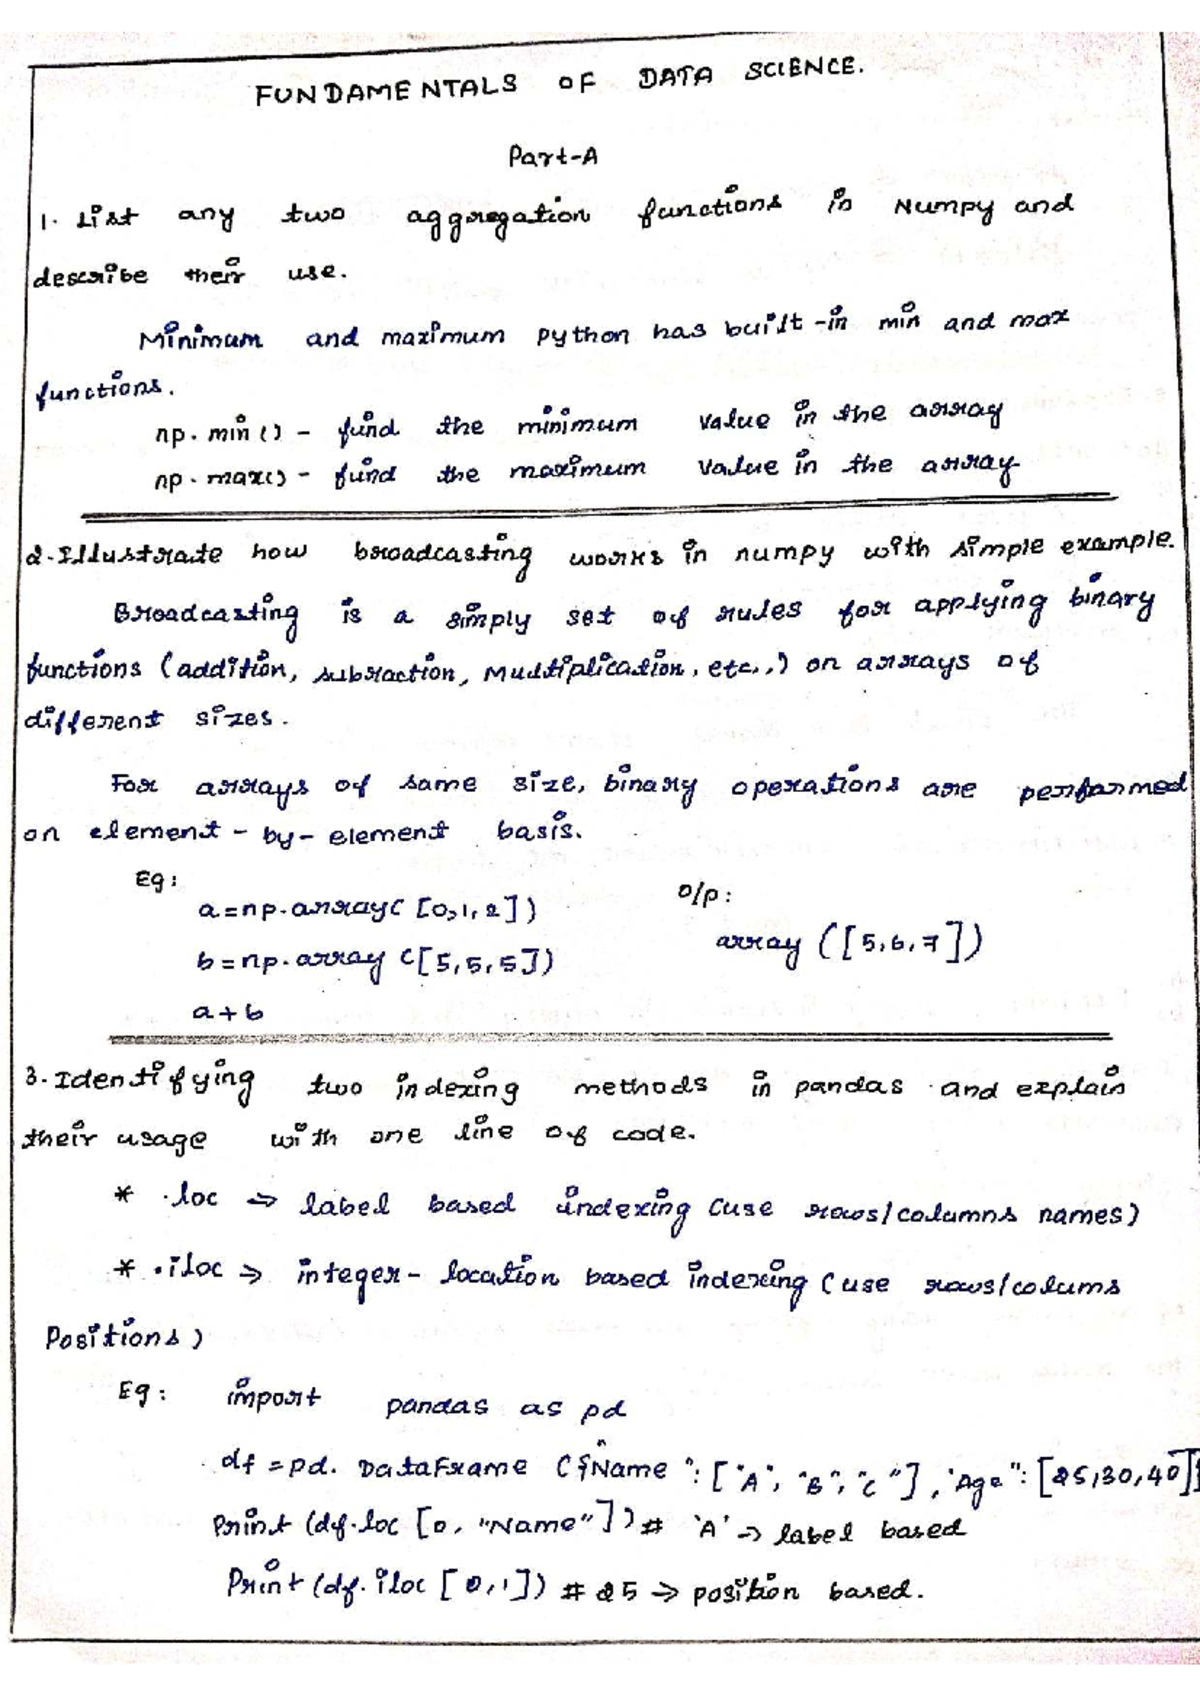 FUNDAMENTALS OF DATA SCIENCE.
Part-A
1. List any two aggregation functions in Numpy and
describe their use.
Minimum and maximum python has built-in min and max
functions.
np.min() - find the minimum value in the array
np.max() - find the maximum value in the array
2. Illustrate how broadcasting works in numpy with simple example.
Broadcasting is a simply set of rules for applying binary
functions (addition, subraction, Multiplication, etc.,) on arrays of
different sizes.
For arrays of same size, binary operations are performed
on element-by-element basis.
Eg: O/p:
a=np.array([0,1,2])
array([5,6,7])
b=np.array([5,5,5])
a+b
3. Identifying two indexing methods in pandas and explain
their usage with one line of code.
* .loc => label based indexing (use rows/columns names)
* .iloc => integer-location based indexing (use rows/colums
Positions)
Eg: import pandas as pd
df = pd.DataFrame ({"Name": ["A", "B", "C"], "Age": [25,30,40]}
Print (df.loc [0, "Name"]) # 'A' => label based
Print (df.iloc [0,1]) # 25 => position based.